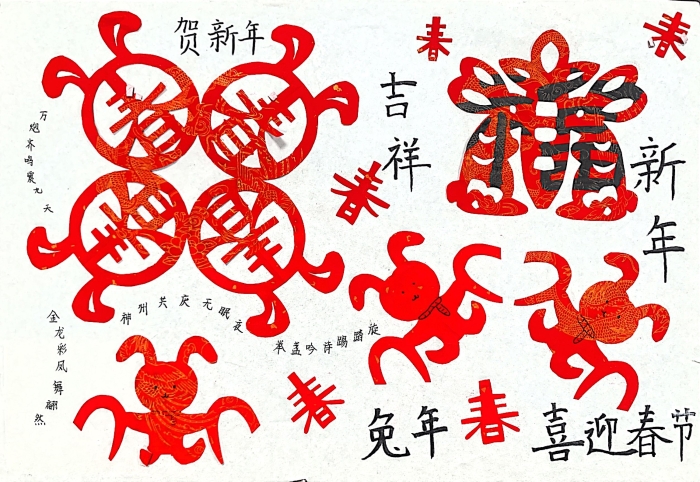 贺新年
春
春
春
春
春
春
福
吉祥
新年
万炮齐鸣震九天
春
春
春
神州共庆无眠夜
金龙彩凤舞翩然
举盏吟诗踢踏旋
兔年
喜迎春节